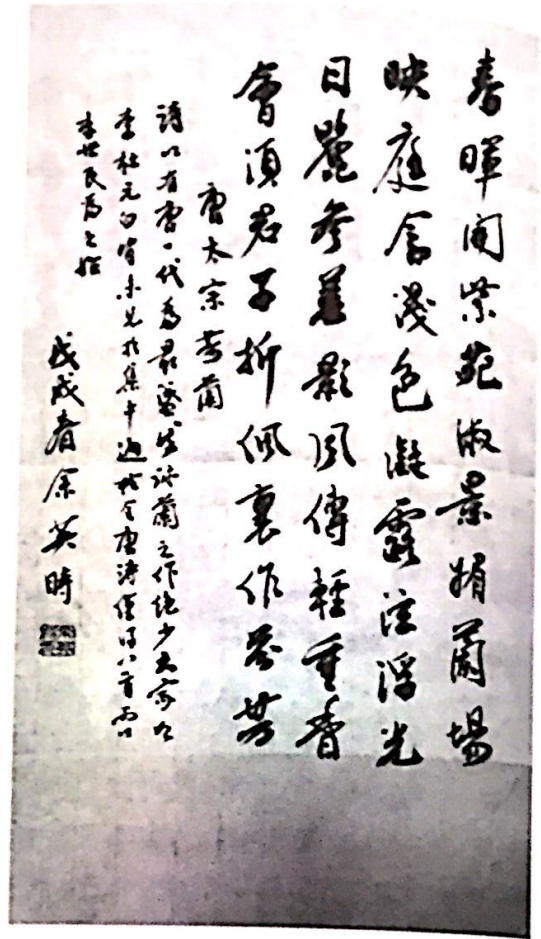 春暉開紫苑淑景媚蘭場
映庭含淺色凝露泫浮光
日麗參差影風傳輕重香
會須君子折佩裏作芬芳
唐太宗芳蘭
詩以有唐一代為最盛然詠蘭之作絕少大家如
李杜元白皆未見於集中遍全唐詩僅得八首而以
李世民為之始
戊戌春余英時